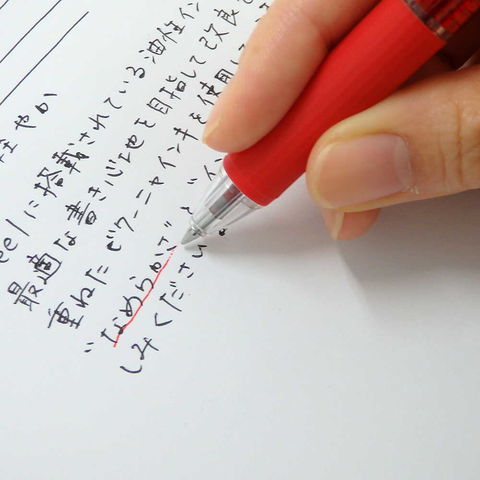 軽やか
eelに搭載されている油性イン
最適な書き心地を目指して改良を
重ねた"ワーニャインキを使用し
"なめらかさ"
しみください